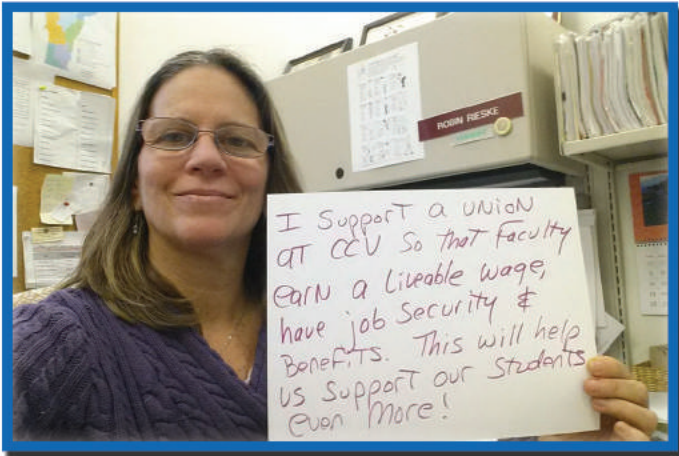 ROBIN RIESKE
I Support a UNION
at CCV So that Faculty
earn a Liveable wage,
have job Security &
Benefits. This will help
us Support our Students
even More!